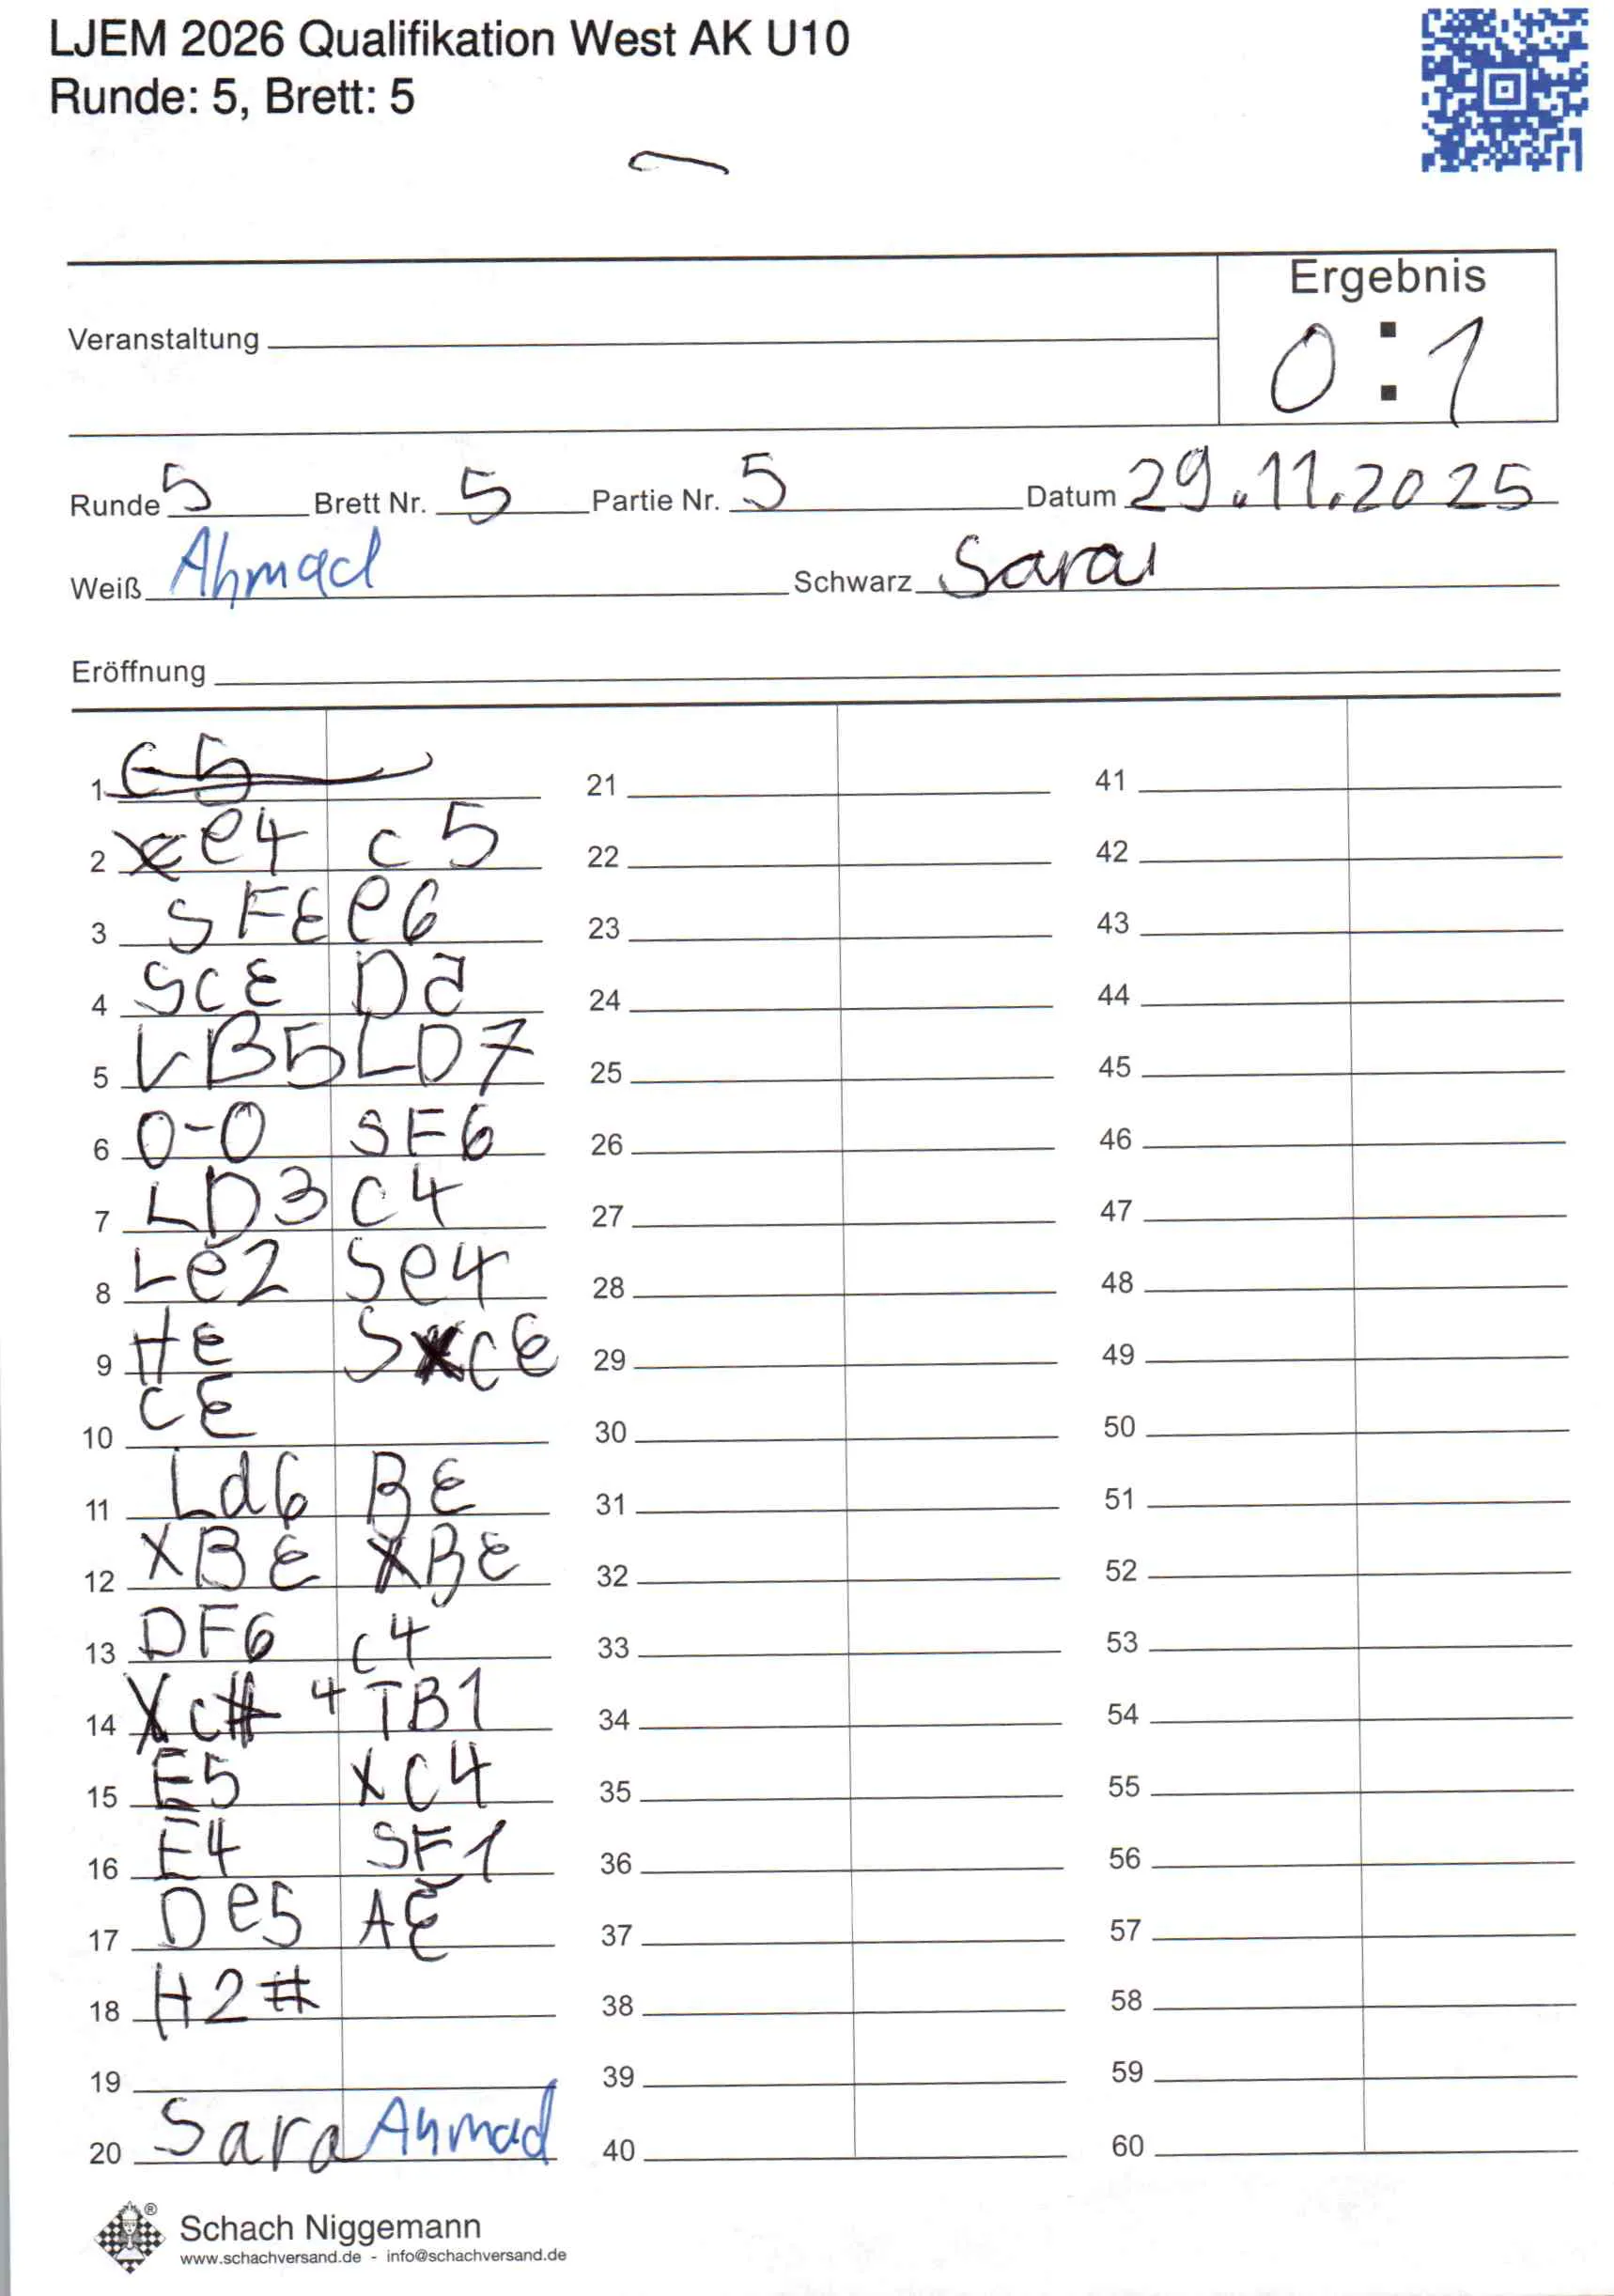 LJEM 2026 Qualifikation West AK U10
Runde: 5, Brett: 5
Ergebnis
Veranstaltung
0:1
Runde 5 Brett Nr. 5 Partie Nr. 5 Datum 29.11.2025
Weiß Ahmad Schwarz Sara
Eröffnung
1 21 41
2 e4 c5 22 42
3 SFE e6 23 43
4 SCE Dd 24 44
5 LB5 LD7 25 45
6 0-0 SF6 26 46
7 LD3 C4 27 47
8 Le2 Se4 28 48
9 HE SxCE 29 49
10 CE 30 50
11 Ld6 BE 31 51
12 XBE XBE 32 52
13 DF6 c4 33 53
14 4 TB1 34 54
15 E5 XC4 35 55
16 E4 SF1 36 56
17 De5 AE 37 57
18 H2# 38 58
19 39 59
20 Sara Ahmad 40 60
® Schach Niggemann
www.schachversand.de - info@schachversand.de